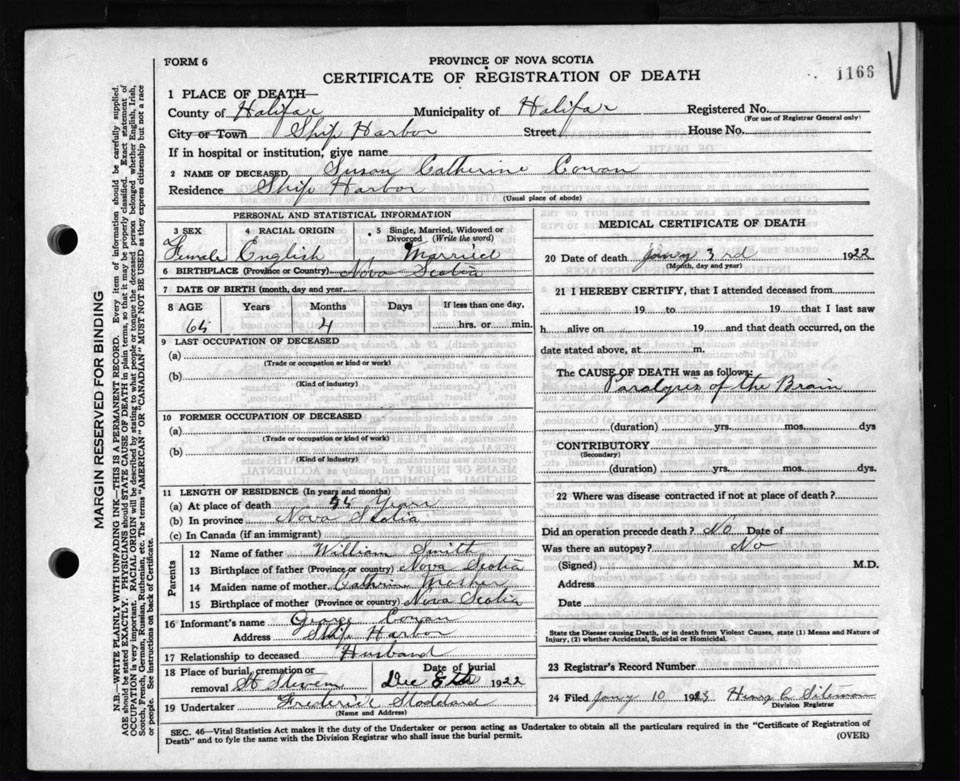 FORM 6
PROVINCE OF NOVA SCOTIA
CERTIFICATE OF REGISTRATION OF DEATH
1166
1 PLACE OF DEATH—
County of Halifax Municipality of Halifax Registered No.
(For use of Registrar General only)
City or Town Ship Harbor Street House No.
If in hospital or institution, give name
2 NAME OF DECEASED, Susan Catherine Cowan
Residence Ship Harbor
(Usual place of abode)
PERSONAL AND STATISTICAL INFORMATION
3 SEX 4 RACIAL ORIGIN 5 Single, Married, Widowed or Divorced (Write the word)
Female English Married
6 BIRTHPLACE (Province or Country) Nova Scotia
7 DATE OF BIRTH (month, day and year)
8 AGE Years Months Days If less than one day,
4 hrs. or min.
9 LAST OCCUPATION OF DECEASED
(a)
(Trade or occupation or kind or work)
(b)
(Kind of industry)
10 FORMER OCCUPATION OF DECEASED
(a)
(Trade or occupation or kind or work)
(b)
(Kind of industry)
11 LENGTH OF RESIDENCE (In years and months)
(a) At place of death years
(b) In province Nova Scotia
(c) In Canada (if an immigrant)
Parents
12 Name of father William Smith
13 Birthplace of father (Province or country) Nova Scotia
14 Maiden name of mother Cathrine Mosher
15 Birthplace of mother (Province or country) Nova Scotia
16 Informant's name George Cowan
Address Ship Harbor
17 Relationship to deceased Husband
18 Place of burial, cremation or removal St Stevens Date of burial Dec 8th 1922
19 Undertaker Frederick Stoddard
(Name and Address)
MEDICAL CERTIFICATE OF DEATH
20 Date of death Jany 3rd 1922
(Month, day and year)
21 I HEREBY CERTIFY, that I attended deceased from
19 to 19 that I last saw
h alive on 19 and that death occurred, on the
date stated above, at m.
The CAUSE OF DEATH was as follows:
Paralyses of the Brain
(duration) yrs. mos. dys
CONTRIBUTORY
(Secondary)
(duration) yrs. mos. dys.
22 Where was disease contracted if not at place of death?
Did an operation precede death? No Date of
Was there an autopsy? No
(Signed) M.D.
Address
Date
State the Disease causing Death, or in death from Violent Causes, state (1) Means and Nature of
Injury, (2) whether Accidental, Suicidal or Homicidal.
23 Registrar's Record Number
24 Filed Jany 10 1923
Division Registrar
SEC. 46—Vital Statistics Act makes it the duty of the Undertaker or person acting as Undertaker to obtain all the particulars required in the "Certificate of Registration of
Death" and to fyle the same with the Division Registrar who shall issue the burial permit. (OVER)
MARGIN RESERVED FOR BINDING
N.B.—WRITE PLAINLY WITH UNFADING INK—THIS IS A PERMANENT RECORD. Every item of information should be carefully supplied.
AGE should be stated EXACTLY. PHYSICIANS should STATE CAUSE OF DEATH in plain terms, so that it may be properly classified. Exact statement of
OCCUPATION is very important. RACIAL ORIGIN will be described by stating to what people or tongue the deceased person belonged whether English, Irish,
Scotch, French, German, Russian, Ruthenian, etc. The terms "AMERICAN" OR "CANADIAN" MUST NOT BE USED as they express citizenship but not a race
or people. See instructions on back of Certificate.